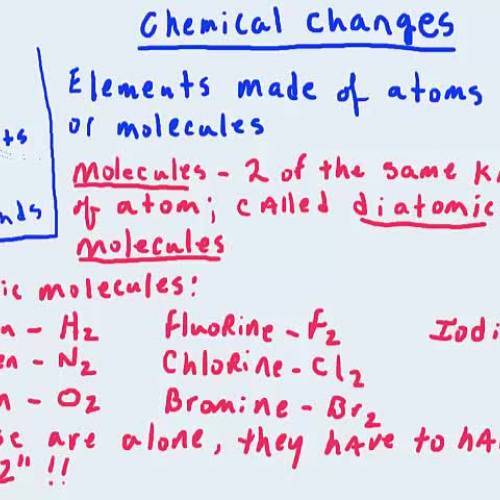 Chemical changes
Elements made of atoms
or molecules
ts
nds
Molecules - 2 of the same k
of atom; called diatomic
molecules
ic molecules:
n - H2 Fluorine - F2 Iodi
en - N2 Chlorine - Cl2
n - O2 Bromine - Br2
se are alone, they have to ha
2" !!